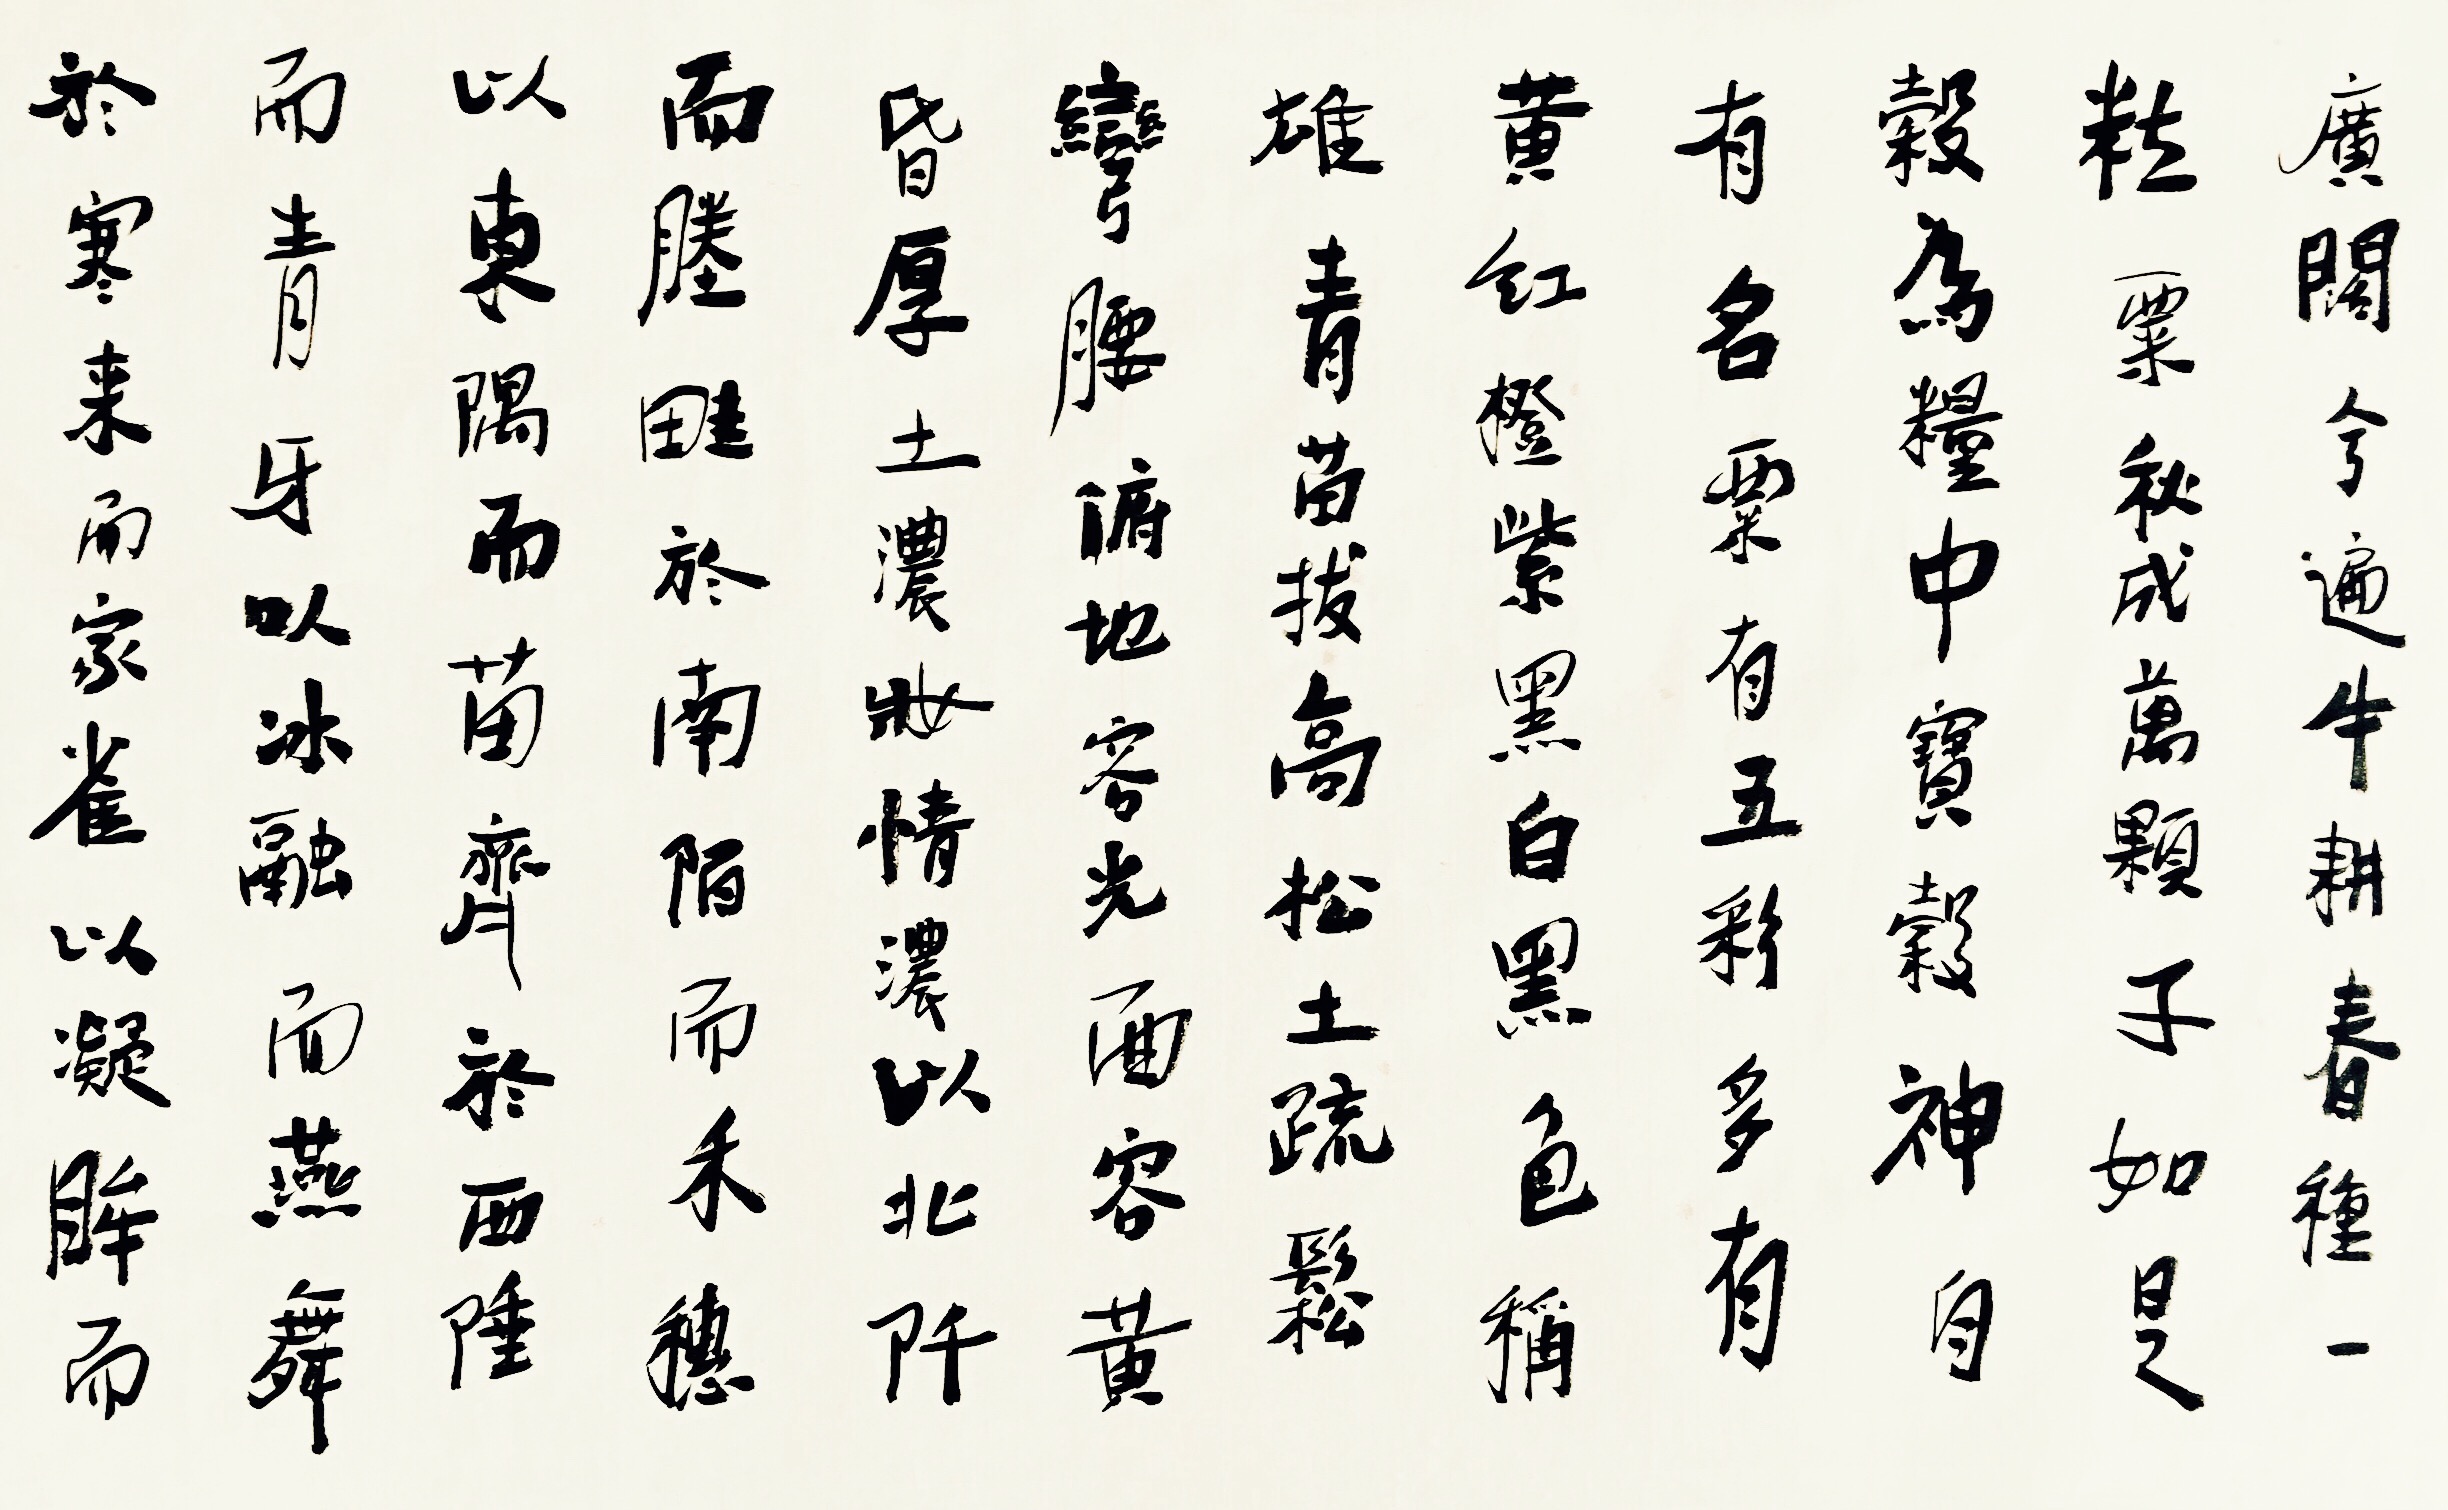 廣闊兮遍牛耕春種一
粒粟秋成萬顆子如是
穀為糧中寶穀神自
有名粟有五彩多有
黄紅橙紫黑白黑色稱
雄青苗拔高松土疏鬆
彎腰俯地容光面容黄
昏厚土濃妝情濃以北阡
而塍畦於南陌而禾穗
以東隅而苗齊於西陲
而青牙以冰融而燕舞
於寒来而家雀以凝眸而